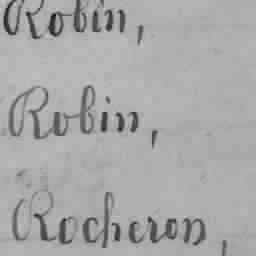 Robin,
Robin,
Rocheron,